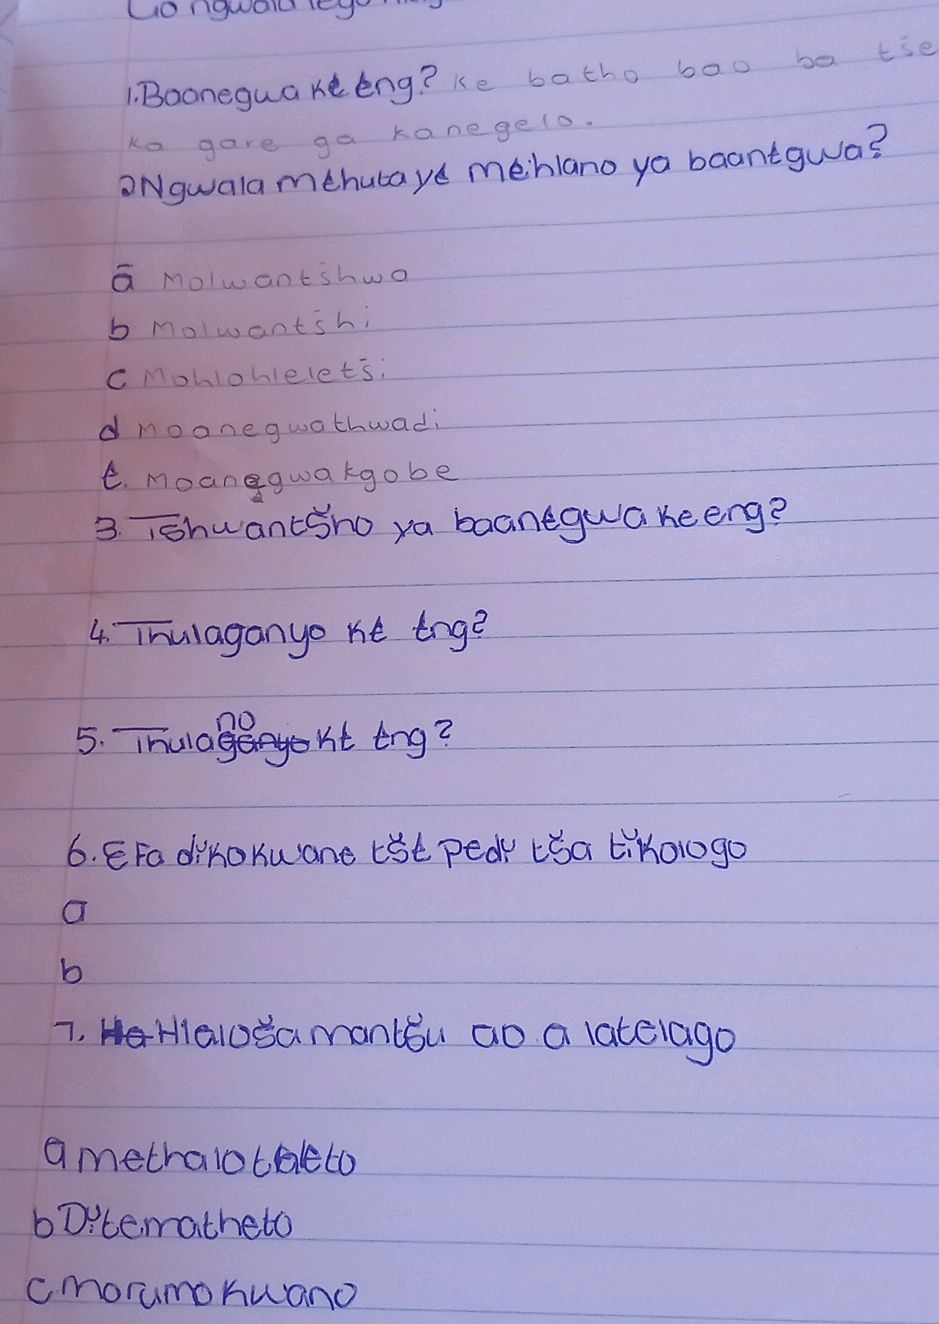 1. Baanegwa ke eng? Ke batho bao ba tše
ka gare ga kanegelo.
2 Ngwala mehuta ye mehlano ya baanegwa?
a Molwantšhwa
b Molwantšhi
c Mohlohleletši
d Moanegwathwadi
e. Moanegwakgobe
3. Tshwantšho ya baanegwa ke eng?
4. Thulaganyo ke eng?
no
5. Thulaganyo ke eng?
6. Efa dikokwane tše pedi tša tikologo
a
b
7. Ha Hlaloša mantšu ao a latelago
a methalotheto
b Ditematheto
c morumokwano